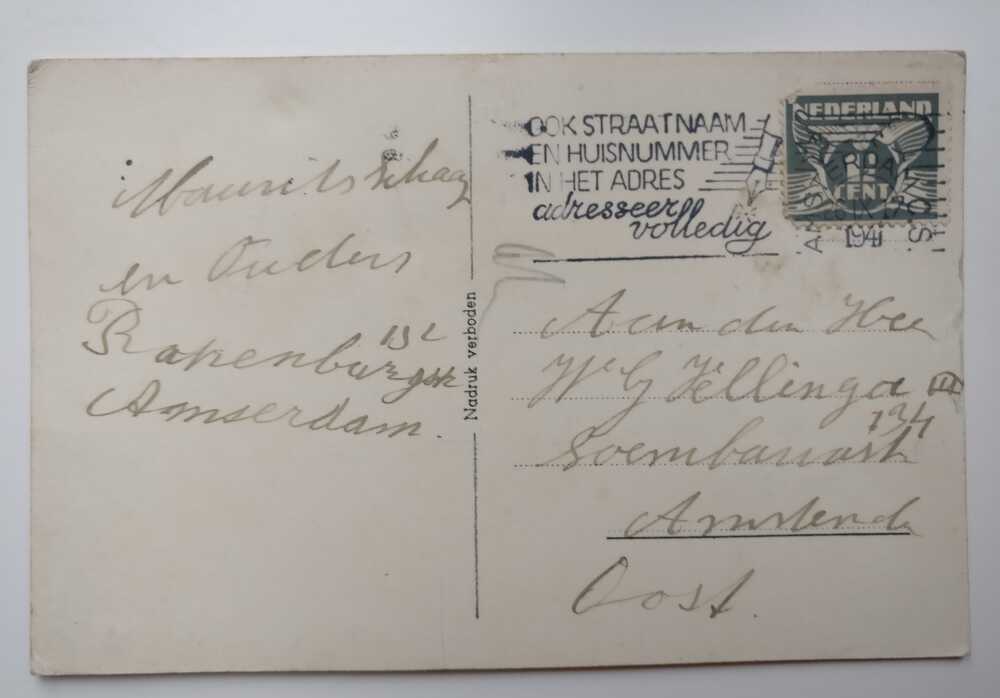 Maurits Schaap
en Ouders
Rapenburgstr 132
Amserdam.
Nadruk verboden
OOK STRAATNAAM
EN HUISNUMMER
IN HET ADRES
adresseer
volledig
NEDERLAND
CENT
1941
Aan den Hee
W G Jellinga
134
Soembawastr
Amsterda
Oost.